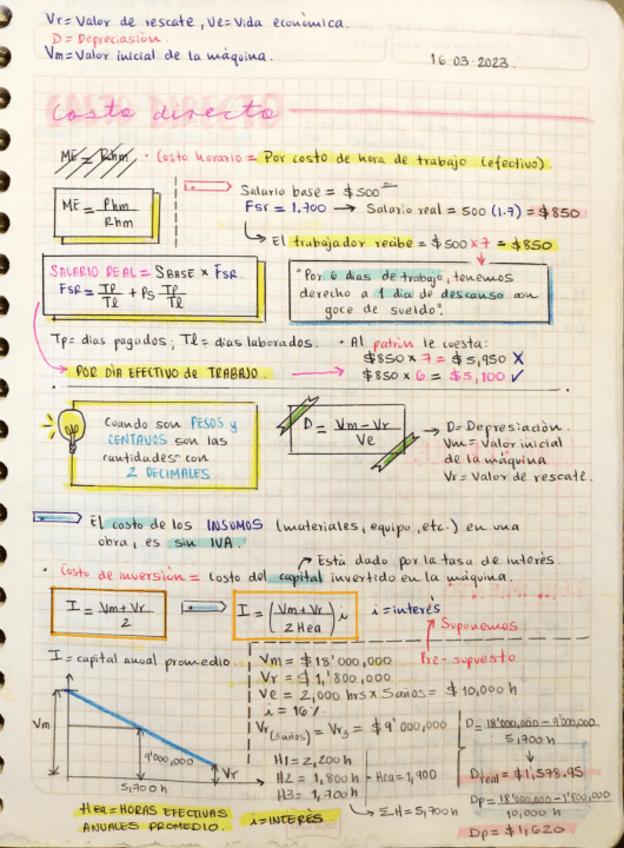 Vr=Valor de rescate, Ve=Vida económica.
D=Depreciasión.
Vm=Valor inicial de la máquina.
16·03·2023.
Costo directo
ME = Rhm
· Costo horario = Por costo de hora de trabajo (efectivo).
ME = Phm / Rhm
Salario base = $500
Fsr = 1.700 → Salario real = 500 (1.7) = $850
↳ El trabajador recibe = $500 x 7 = $850
SALARIO REAL = SBASE x FSR.
FSR = Tp/Tl + Ps Tp/Tl
"Por 6 dias de trabajo, tenemos
derecho a 1 dia de descanso con
goce de sueldo".
Tp= dias pagados; Tl= dias laborados.
POR DÍA EFECTIVO de TRABAJO.
· Al patrón le cuesta:
$850 x 7 = $5,950 X
$850 x 6 = $5,100 ✓
Cuando son PESOS y
CENTAVOS son las
cantidades con
2 DECIMALES
D = Vm - Vr / Ve
→ D= Depresiación.
Vm= Valor inicial
de la máquina
Vr= Valor de rescate.
El costo de los INSUMOS (materiales, equipo, etc.) en una
obra, es sin IVA.
Está dado por la tasa de interés.
· Costo de inversión = Costo del capital invertido en la máquina.
I = Vm + Vr / 2
I = (Vm + Vr / 2 Hea) i
i=interés
Suponemos
Pre-supuesto
I = capital anual promedio.
Vm
9'000,000
Vr
5,700 h
Vm = $18'000,000
Vr = $1,'800,000
Ve = 2,000 hrs x 5años = $10,000 h
i = 16%
Vr(3años) = Vr3 = $9'000,000
H1 = 2,200 h
H2 = 1,800 h - Hea = 1,900
H3 = 1,700 h
→ ΣH = 5,700 h
D = 18'000,000 - 9'000,000 / 5,700 h
Dreal = $1,578.95
Dp = 18'000,000 - 1'800,000 / 10,000 h
Dp = $1,620
Hea = HORAS EFECTIVAS
ANUALES PROMEDIO.
i=INTERÉS